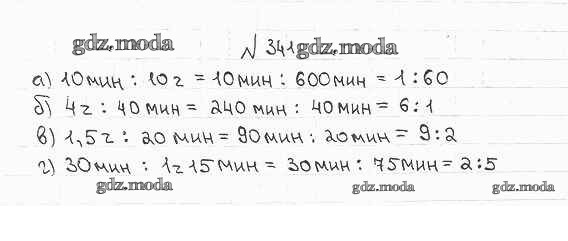 gdz.moda
№ 341 gdz.moda
а) 10 мин : 10 г = 10 мин : 600 мин = 1 : 60
б) 4 г : 40 мин = 240 мин : 40 мин = 6 : 1
в) 1,5 г : 20 мин = 90 мин : 20 мин = 9 : 2
г) 30 мин : 1 г 15 мин = 30 мин : 75 мин = 2 : 5
gdz.moda gdz.moda gdz.moda